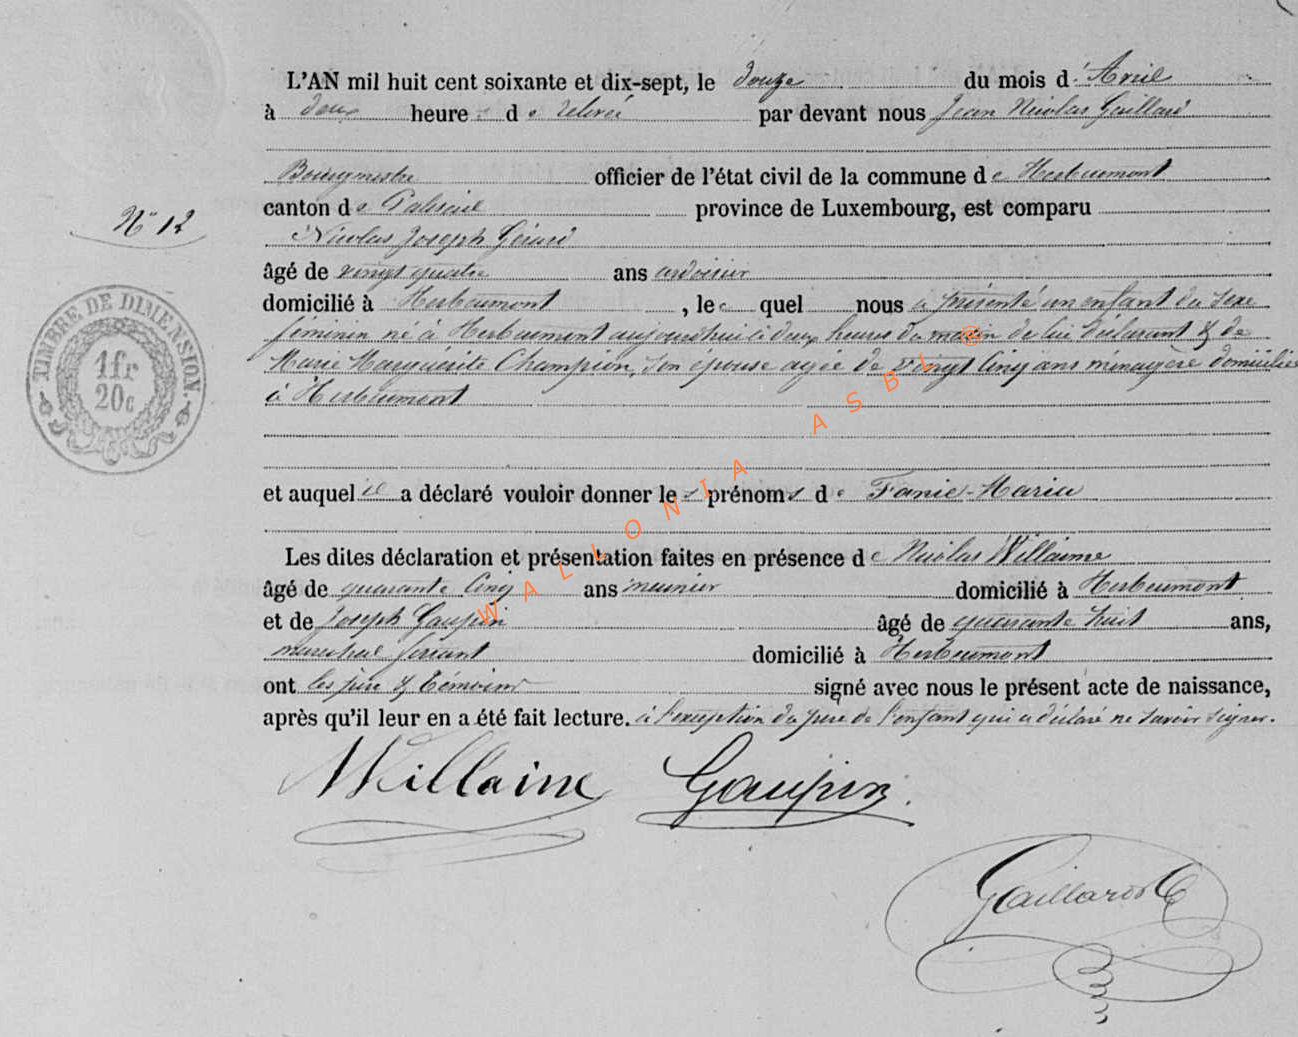 L'AN mil huit cent soixante et dix-sept, le douze du mois d' Avril
à deux heures de relevée par devant nous Jean Nicolas Gaillard
Bourgmestre officier de l'état civil de la commune de Herbeumont
canton de Paliseul province de Luxembourg, est comparu
N° 12
Nicolas Joseph Gérard
âgé de vingt quatre ans ardoisier
domicilié à Herbeumont, lequel nous a présenté un enfant du sexe
féminin né à Herbeumont aujourd'hui à deux heures du matin de lui déclarant & de
Marie Marguérite Champion, son épouse agée de vingt cinq ans ménagère domiciliée
à Herbeumont
TIMBRE DE DIMENSION.
1fr
20c
et auquel il a déclaré vouloir donner les prénoms de Fanie-Maria
Les dites déclaration et présentation faites en présence de Nicolas Willaime
âgé de quarante cinq ans meunier domicilié à Herbeumont
et de Joseph Gaupin âgé de quarante huit ans,
marechal ferrant domicilié à Herbeumont
ont les père & témoins signé avec nous le présent acte de naissance,
après qu'il leur en a été fait lecture. à l'exception du père de l'enfant qui a déclaré ne savoir signer.
NWillaime Gaupin
Gaillard
WALLONIA ASBL ®